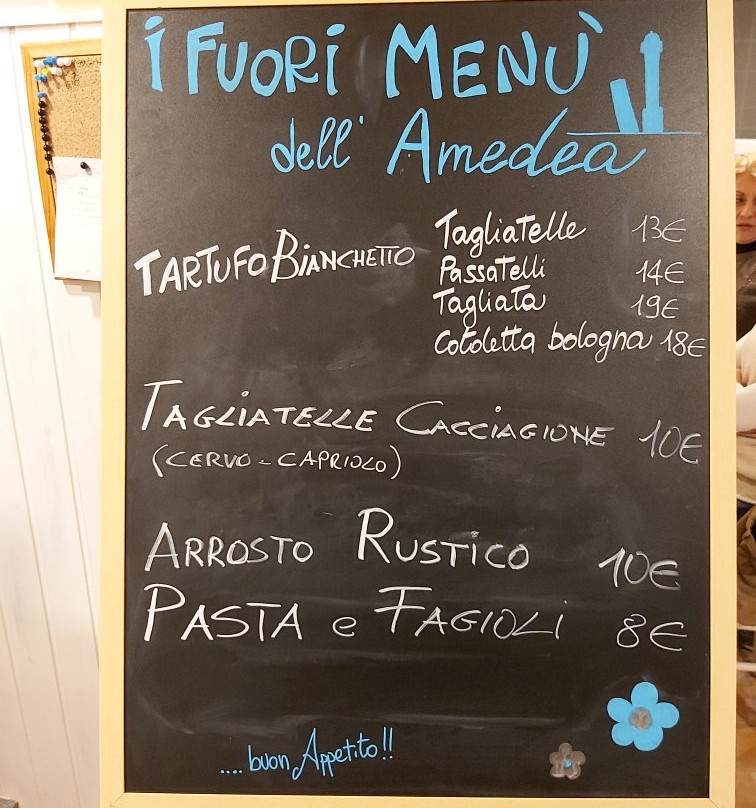 I FUORI MENÙ
dell' Amedea
TARTUFO BIANCHETTO
Tagliatelle 13€
Passatelli 14€
Tagliata 19€
Cotoletta bologna 18€
TAGLIATELLE CACCIAGIONE 10€
(CERVO - CAPRIOLO)
ARROSTO RUSTICO 10€
PASTA e FAGIOLI 8€
....buon Appetito!!